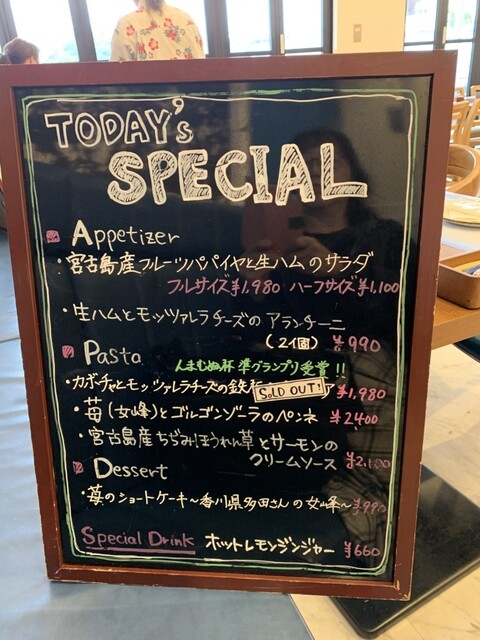 TODAY's
SPECIAL
Appetizer
・宮古島産フルーツパパイヤと生ハムのサラダ
フルサイズ¥1,980 ハーフサイズ¥1,100
・生ハムとモッツァレラチーズのアランチーニ
(2個) ¥990
Pasta んまむぬ杯 準グランプリ受賞!!
・カボチャとモッツァレラチーズの鉄 SOLD OUT! ¥1,980
・苺(女峰)とゴルゴンゾーラのペンネ ¥2,400
・宮古島産ちぢみほうれん草とサーモンの
クリームソース ¥2,100
Dessert
・苺のショートケーキ~香川県多田さんの女峰~ ¥990
Special Drink ホットレモンジンジャー ¥660